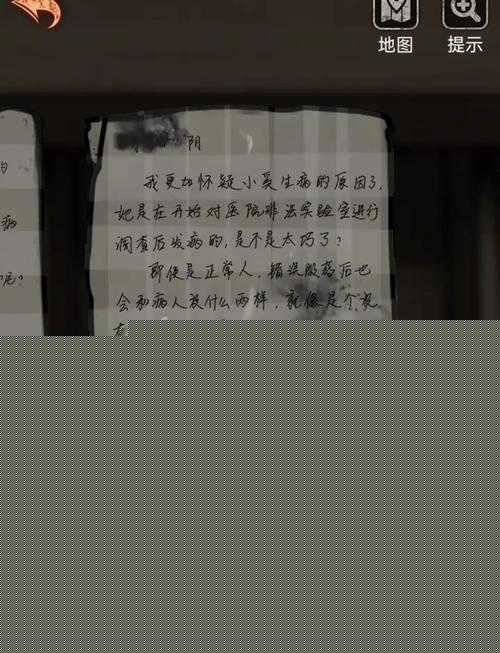 地图 提示
阴
我更加怀疑小美生病的原因了，
她是在开始对医院非法实验室进行
调查后发病的，是不是太巧了？
即便是正常人，错误服药后也
会和病人没什么两样，就像是个
病
呢？